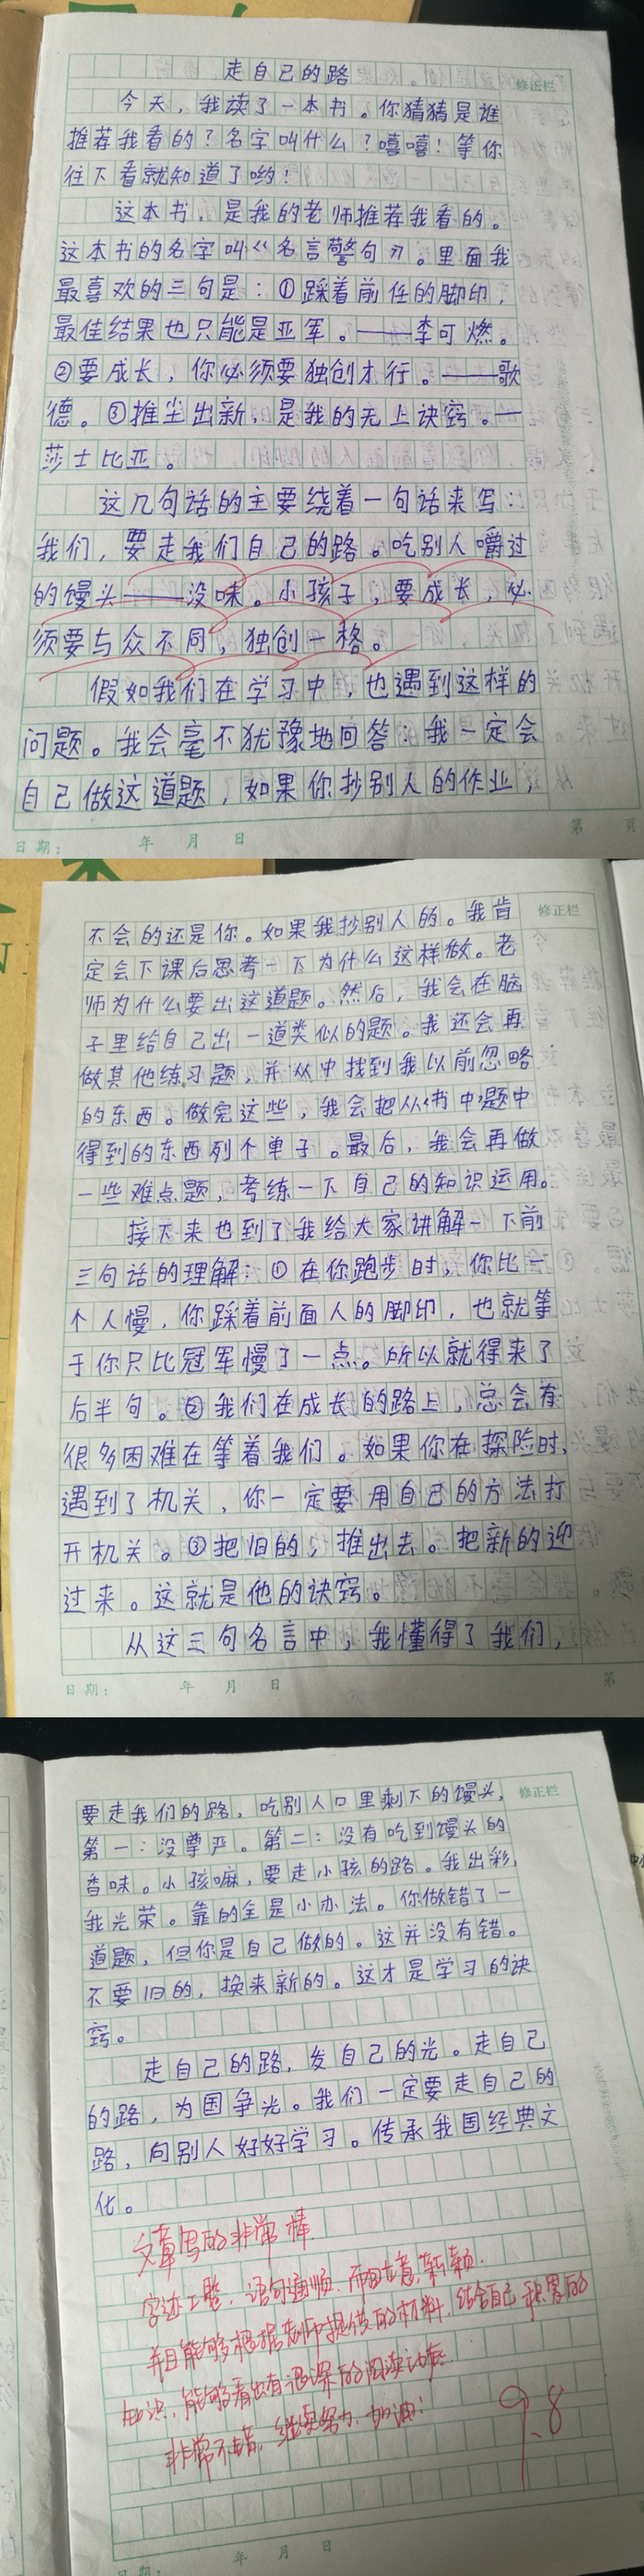 走自己的路
修正栏
今天，我读了一本书。你猜猜是谁
推荐我看的？名字叫什么？嘻嘻！等你
往下看就知道了哟！
这本书，是我的老师推荐我看的。
这本书的名字叫《名言警句》。里面我
最喜欢的三句是：①踩着前任的脚印，
最佳结果也只能是亚军。——李可燃。
②要成长，你必须要独创才行。——歌
德。③推尘出新，是我的无上诀窍。—
莎士比亚。
这几句话的主要绕着一句话来写：
我们，要走我们自己的路。吃别人嚼过
的馒头——没味。小孩子，要成长，必
须要与众不同，独创一格。
假如我们在学习中，也遇到这样的
问题。我会毫不犹豫地回答：我一定会
自己做这道题，如果你抄别人的作业，
日期： 年 月 日
第 页
修正栏
不会的还是你。如果我抄别人的。我肯
定会下课后思考一下为什么这样做。老
师为什么要出这道题。然后，我会在脑
子里给自己出一道类似的题。我还会再
做其他练习题，并从中找到我以前忽略
的东西。做完这些，我会把从书中题中
得到的东西列个单子。最后，我会再做
一些难点题，考练一下自己的知识运用。
接下来也到了我给大家讲解一下前
三句话的理解：①在你跑步时，你比一
个人慢，你踩着前面人的脚印，也就等
于你只比冠军慢了一点。所以就得来了
后半句。②我们在成长的路上，总会有
很多困难在等着我们。如果你在探险时，
遇到了机关，你一定要用自己的方法打
开机关。③把旧的，推出去。把新的迎
过来。这就是他的诀窍。
从这三句名言中，我懂得了我们，
日期： 年 月 日
第
修正栏
要走我们的路，吃别人口里剩下的馒头，
第一：没尊严。第二：没有吃到馒头的
香味。小孩嘛，要走小孩的路。我出彩，
我光荣。靠的全是小办法。你做错了一
道题，但你是自己做的。这并没有错。
不要旧的，换来新的。这才是学习的诀
窍。
走自己的路，发自己的光。走自己
的路，为国争光。我们一定要走自己的
路，向别人好好学习。传承我国经典文
化。
文章写的非常棒
字迹工整，语句通顺，而且立意新颖.
并且能够根据老师提供的材料，结合自己积累的
知识，能够看出有退深的阅读功底
非常不错，继续努力，加油！
9.8
日期： 年 月 日